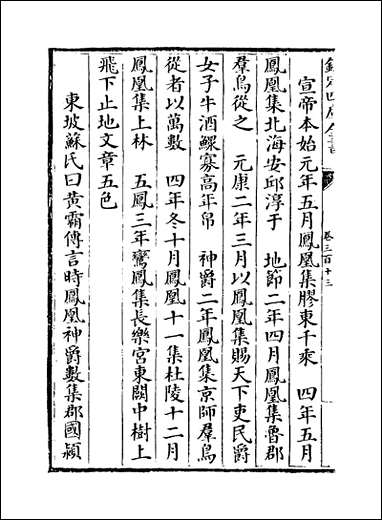 欽定四庫全書
卷三百十三
宣帝本始元年五月鳳凰集膠東千乘　四年五月
鳳凰集北海安邱淳于　地節二年四月鳳凰集魯郡
羣鳥從之　元康二年三月以鳳凰集賜天下吏民爵
女子牛酒鰥寡高年帛　神爵二年鳳凰集京師羣鳥
從者以萬數　四年冬十月鳳凰十一集杜陵十二月
鳳凰集上林　五鳳三年鸞鳳集長樂宮東闕中樹上
飛下止地文章五色
東坡蘇氏曰黃霸傳言時鳳凰神爵數集郡國潁